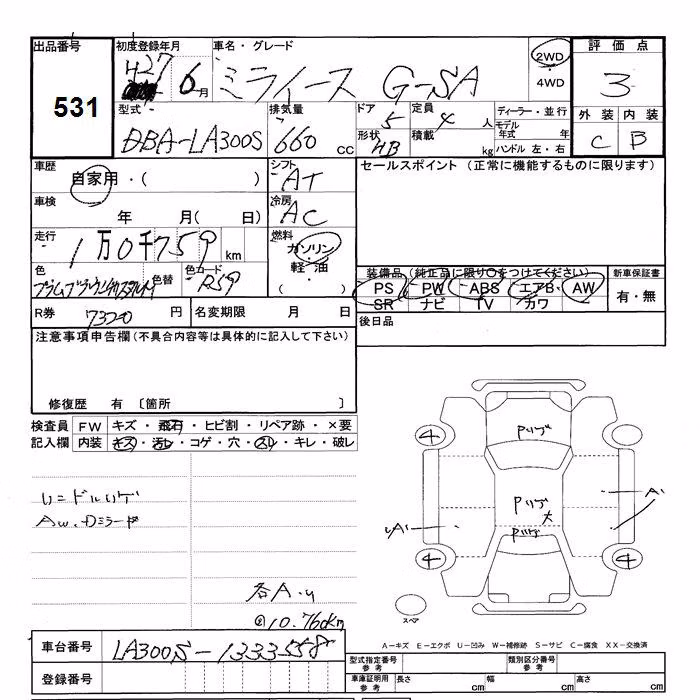 出品番号 初度登録年月 車名・グレード 評価点
531
H27 6月 ミライース G-SA 2WD 4WD 3
型式 排気量 ドア 定員 ディーラー・並行 外装 内装
DBA-LA300S 660 CC 5 4 人 モデル年式 年 C B
形状 HB 積載 kg ハンドル 左・右
車歴 自家用・( ) シフト AT セールスポイント (正常に機能するものに限ります)
車検 年 月( 日) 冷房 AC
走行 1万0千759 km 燃料 ガソリン・軽油・( )
色 プラムブラウンクリスタルM 色替 色カード R59
装備品(純正品に限り○をつけてください) 新車保証書
PS PW ABS エアB AW 有・無
SR ナビ TV カワ
R券 7320 円 名変期限 月 日 後日品
注意事項申告欄(不具合内容等は具体的に記入して下さい)
修復歴 有 〔箇所 〕
検査員記入欄 FW キズ・飛石・ヒビ割・リペア跡・×要
内装 キズ・汚レ・コゲ・穴・スレ・キレ・破レ
AW.Dミラーキ
各A.U
10.760km
4 4 4
Pツゲ
Pツゲ 大
Pツゲ
A'
スペア
A-キズ E-エクボ U-凹み W-補修跡 S-サビ C-腐食 XX-交換済
車台番号 LA300S-1333558
登録番号
型式指定番号 参考 類別区分番号 参考
車庫証明用 参考 長さ cm 幅 cm 高さ cm